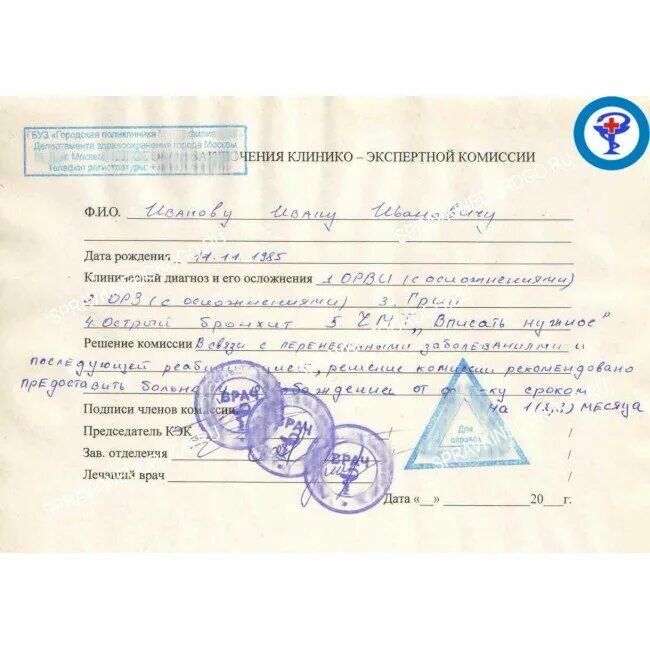 ГБУЗ «Городская поликлиника филиа
Департамента здравоохранения города Москвы
г. Москва
Телефон регистратуры:
ЧЕНИЯ КЛИНИКО – ЭКСПЕРТНОЙ КОМИССИИ
Ф.И.О. Иванову Ивану Ивановичу
Дата рождения 11.11.1985
Клинический диагноз и его осложнения 1. ОРВИ (с осложнениями)
2. ОРЗ (с осложнениями) 3. Грип
4. Острый бронхит 5. Ч.М.Т „Вписать нужное"
Решение комиссии В связи с перенесенными заболеваниями и
последующей решение комиссии рекомендовано
предоставить от сроком
на 1(2,3) месяца
Подписи членов комиссии
Председатель КЭК
Зав. отделения
Лечащий врач
ВРАЧ
ВРАЧ
ВРАЧ
Для
справок
Дата «__» 20__г.